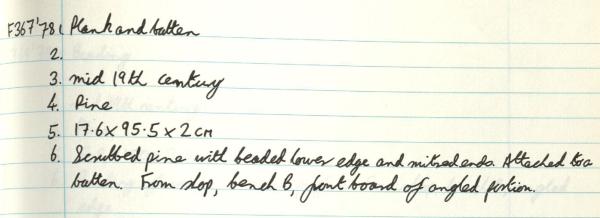 F367'78 1. Plank and batten
2.
3. mid 19th century
4. Pine
5. 17.6 x 95.5 x 2 cm
6. Scrubbed pine with beaded lower edge and mitred ends. Attached to a
batten. From shop, bench B, front board of angled portion.